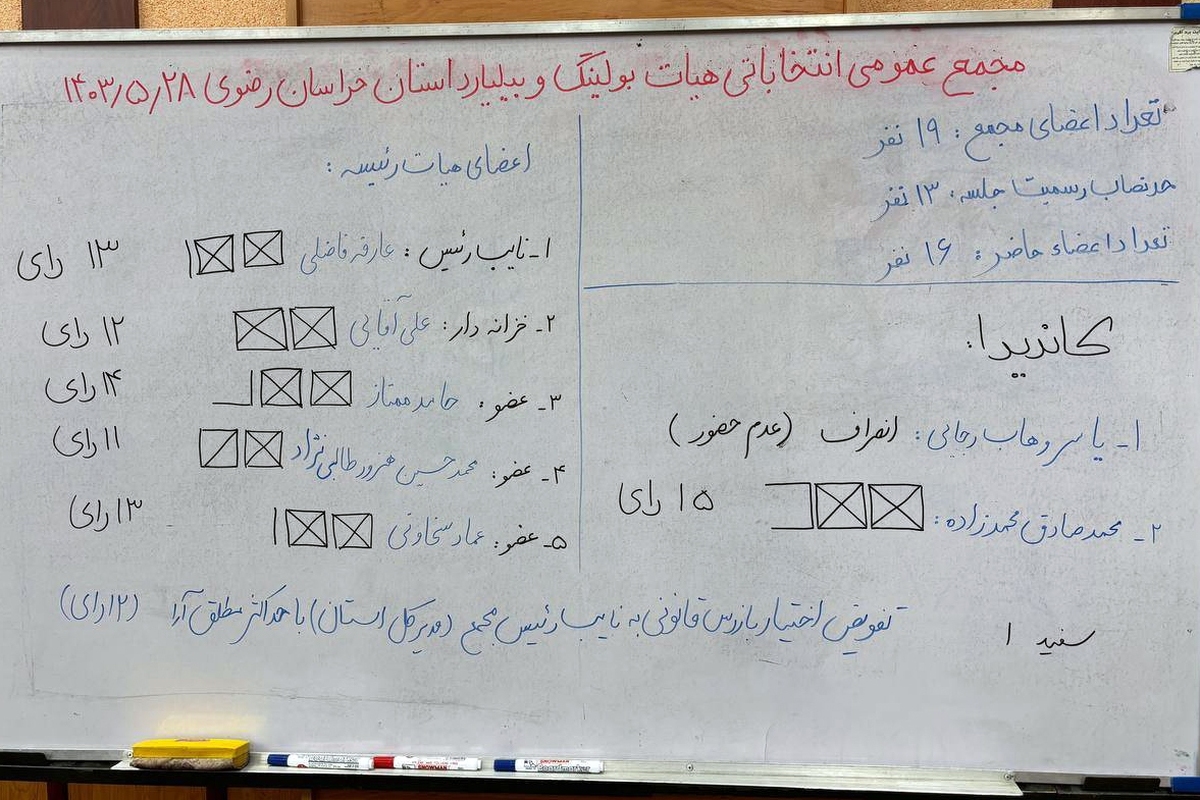 مجمع عمومی انتخاباتی هیات بولینگ و بیلیارد استان خراسان رضوی ۱۴۰۳/۵/۲۸
تعداد اعضای مجمع: ۱۹ نفر
حد نصاب رسمیت جلسه: ۱۳ نفر
تعداد اعضاء حاضر: ۱۶ نفر
کاندیدا:
۱- یاسر وهاب رجایی: انصراف (عدم حضور)
۲- محمد صادق محمدزاده: ۱۵ رای
سفید ۱
اعضای هیات رئیسه:
۱- نایب رئیس: عارفه فاضلی ۱۳ رای
۲- خزانه دار: علی آقائی ۱۲ رای
۳- عضو: حامد ممتاز ۱۴ رای
۴- عضو: محمد حسین هنرور طالبی نژاد ۱۱ رای
۵- عضو: عماد سخاوتی ۱۳ رای
تفویض اختیار بازرس قانونی به نایب رئیس مجمع (مدیر کل استان) با حداکثر مطلق آرا (۱۲ رای)
SNOWMAN
SNOWMAN
Boardmarker